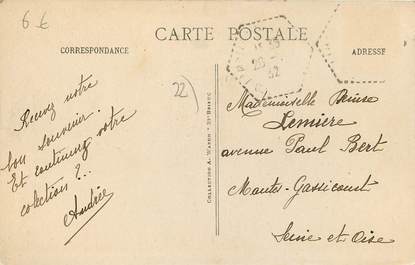 6 €
CARTE POSTALE
CORRESPONDANCE
ADRESSE
Recevez notre
bon souvenir.
Et continuez votre
colection ?...
Andrée
22
COLLECTION A. WARON " ST-BRIEUC
Mademoiselle Denise
Lemière
avenue Paul Bert
Mantes-Gassicourt
Seine et Oise